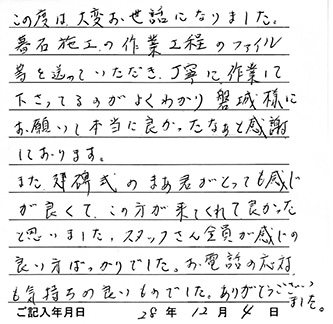 この度は、大変お世話になりました。
墓石施工の作業工程のファイル
等を送っていただき、丁寧に作業して
下さってるのがよくわかり 磐城様に
お願いし本当に良かったなあと感謝
しております。
また、建碑式の
がとっても感じ
が良くて、この方が来てくれて良かった
と思いました。スタッフさん全員が感じの
良い方ばっかりでした。お電話の応対
も気持ちの良いものでした。ありがとうございました。
ご記入年月日 28年 12月 4日